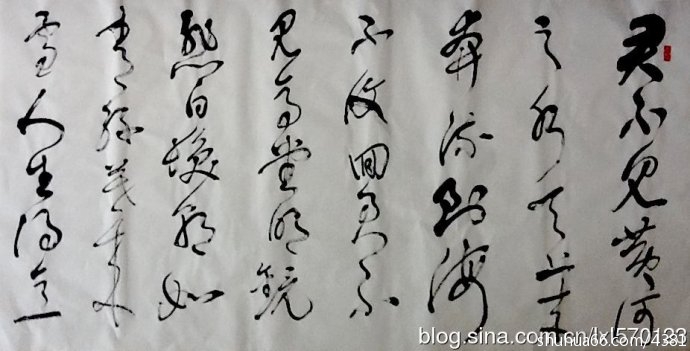 君不見黄河
之水天上来
奔流到海
不復回君不
見高堂明鏡
悲白髮朝如
青絲暮成
雪人生得意
blog.sina.com.cn/lxl570123
shuhua66.com/4381